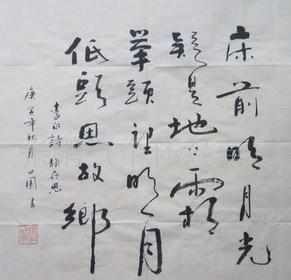 床前明月光
疑是地上霜
举頭望明月
低頭思故鄉
李白詩静夜思
庚寅年秋月